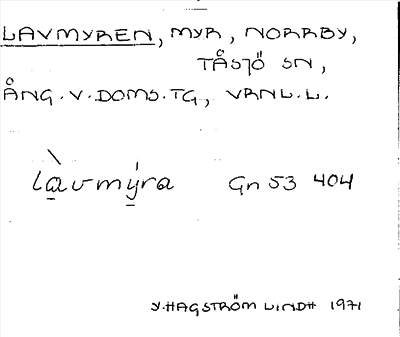 LAVMYREN, MYR, NORRBY,
TÅSJÖ SN,
ÅNG.V.DOMS.TG, VRNL.L.
làvmýra Gn 53 404
Y.HAGSTRÖM LINDH 1971